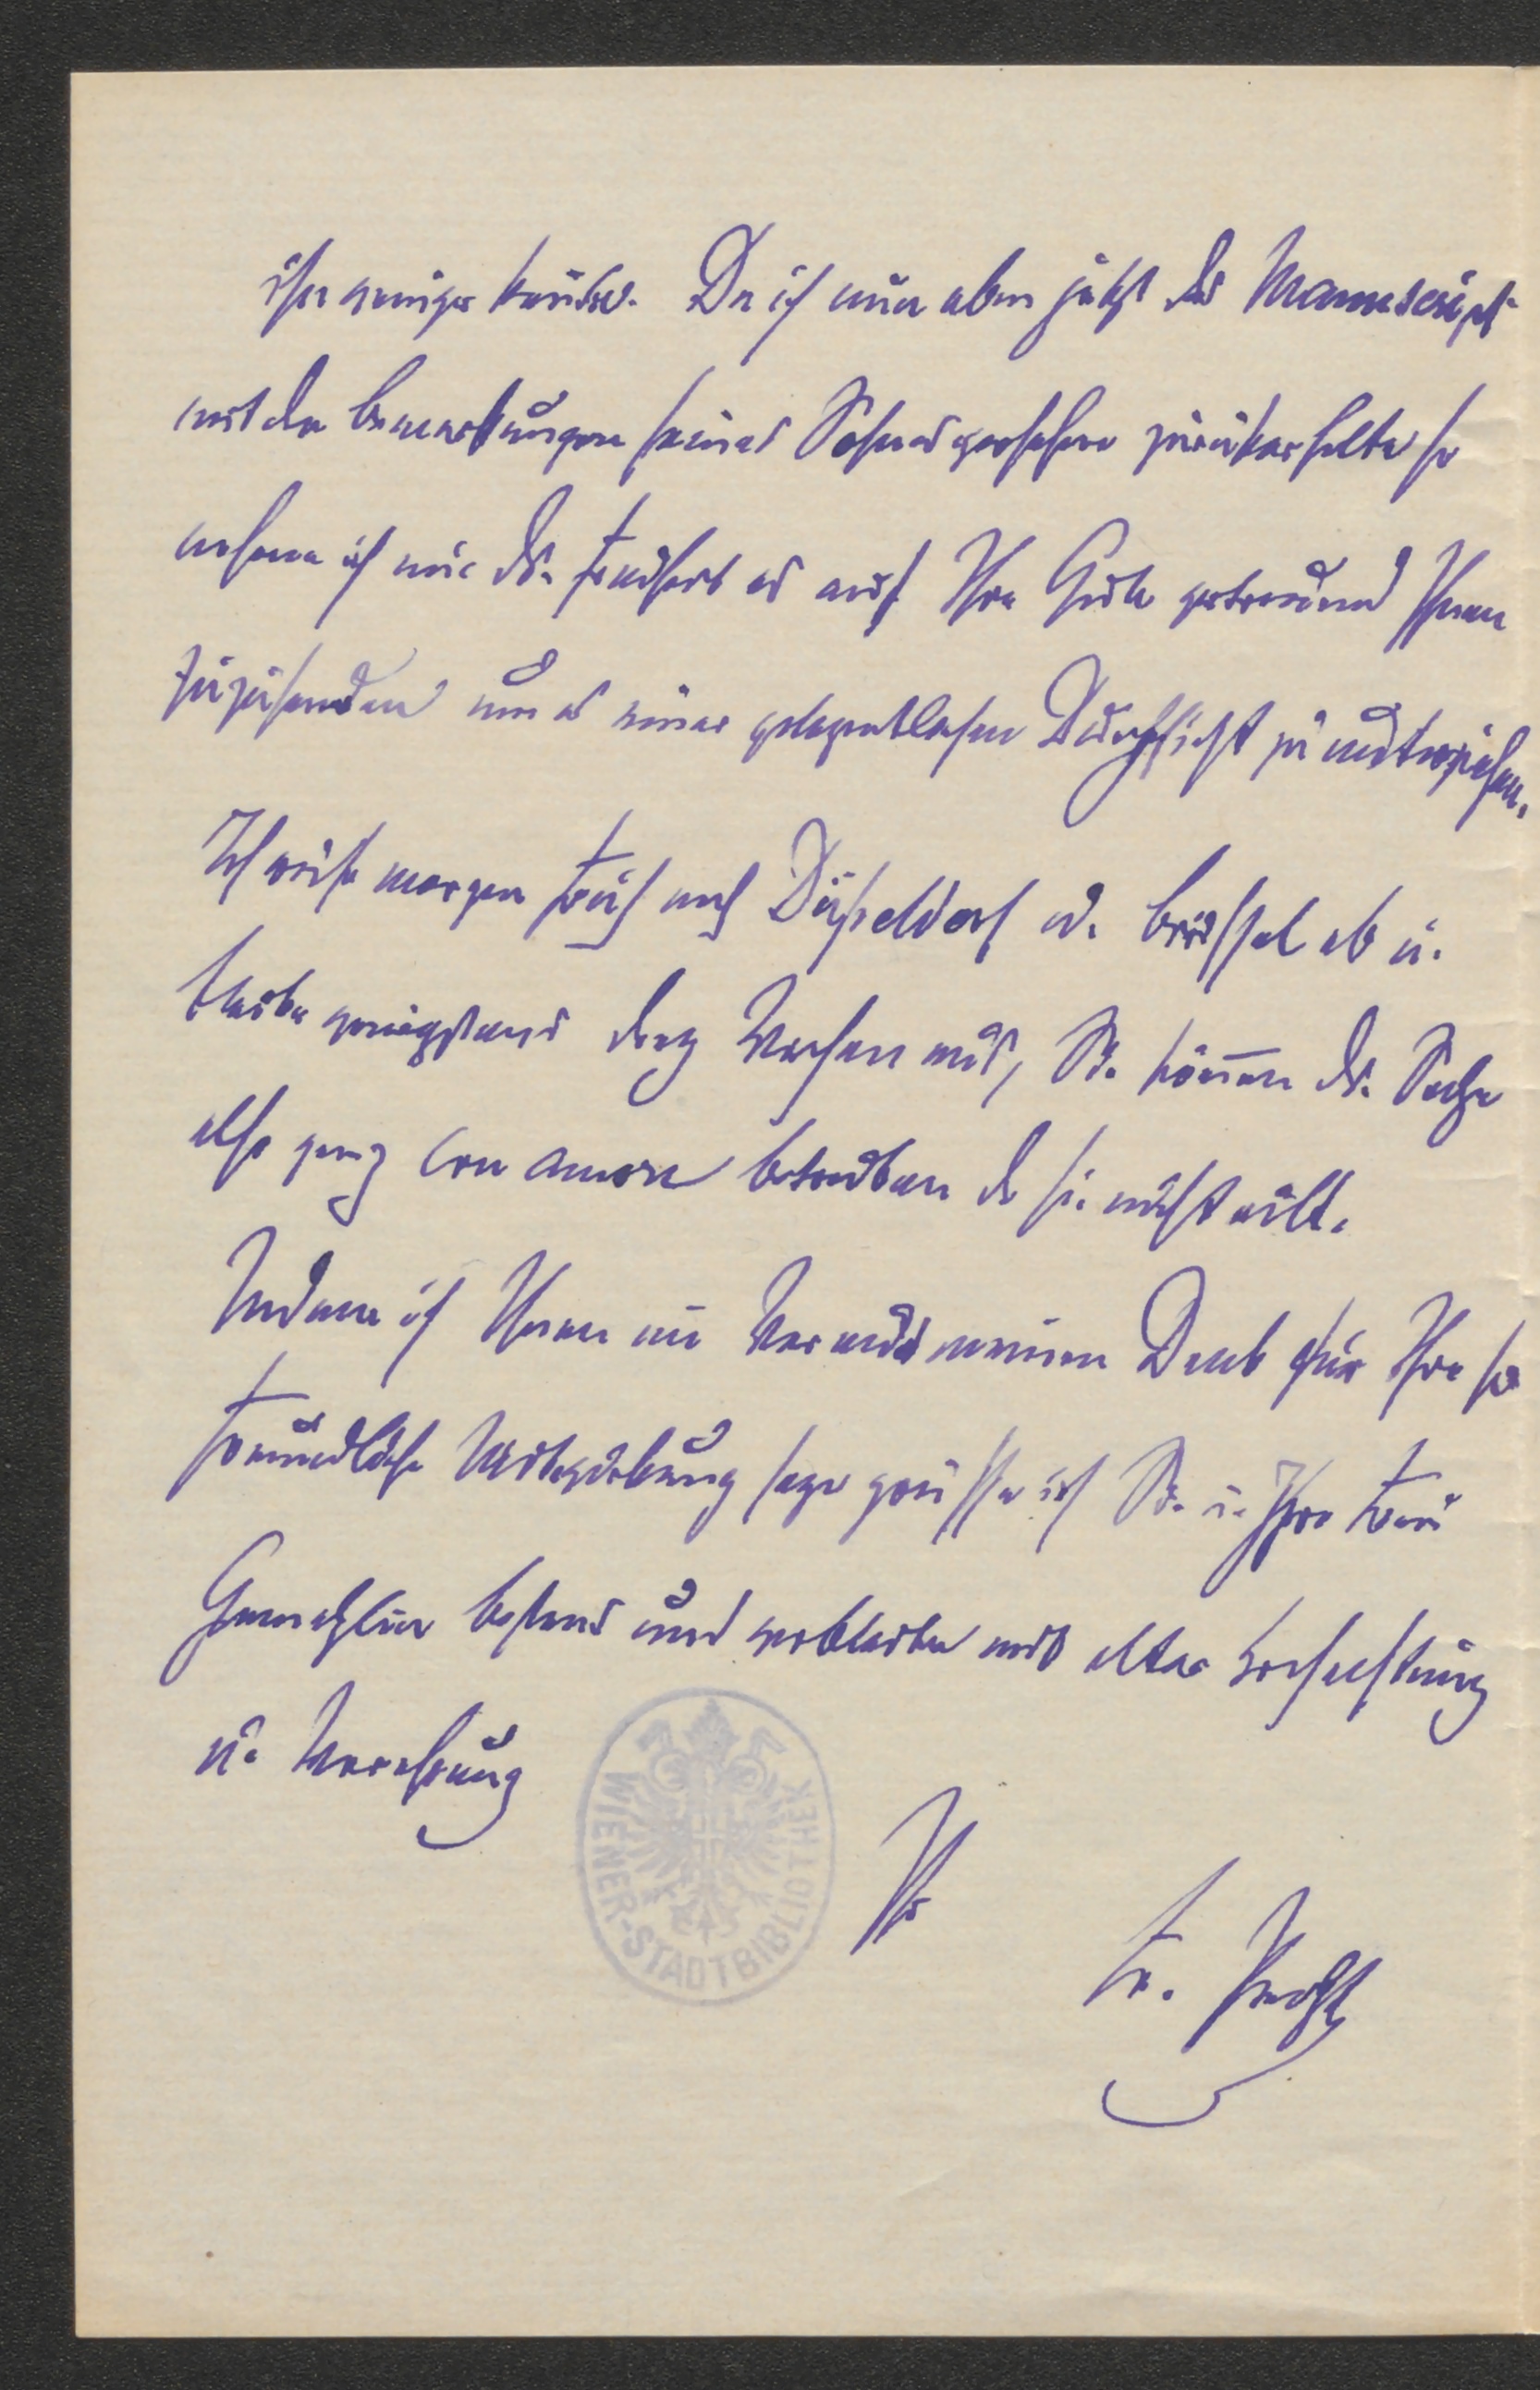 ihn weniger kannte. Da ich nun aber jetzt das Manuscript
mit den Bemerkungen seines Sohnes versehen zurückerhalte so
nehme ich mir die Freiheit es auf Ihre Güte vertrauend Ihnen
zuzusenden um es einer gelegentlichen Durchsicht zu unterziehen.
Ich reise morgen früh nach Düsseldorf u. Brüssel ab u.
bleibe wenigstens drey Wochen aus, Sie können die Sache
also ganz con amore betreiben da sie nicht eilt.
Indem ich Ihnen im Voraus meinen Dank für Ihre so
freundliche sage grüsse ich Sie u. Ihre Frau
Gemahlin bestens und verbleibe mit alter Hochachtung
u. Verehrung
Ihr
Fr. Pecht
WIENER-STADTBIBLIOTHEK